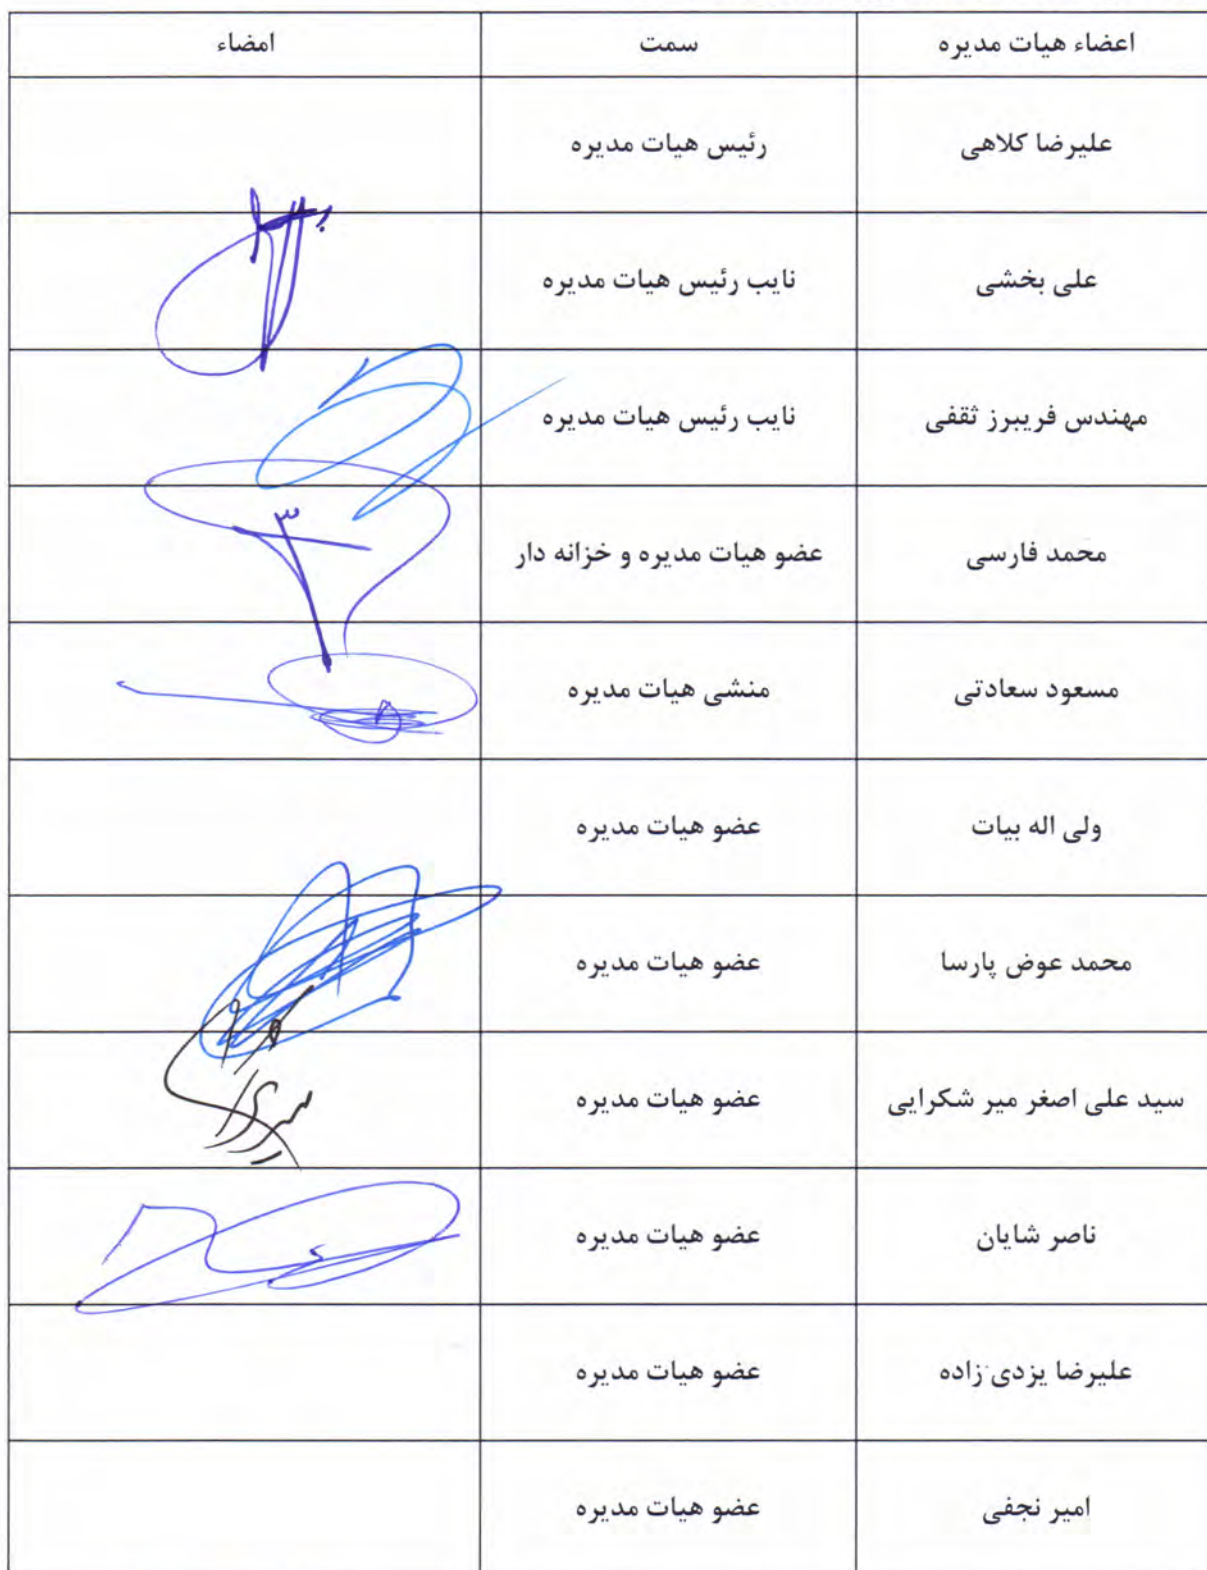 اعضاء هیات مدیره سمت امضاء
علیرضا کلاهی رئیس هیات مدیره
علی بخشی نایب رئیس هیات مدیره
مهندس فریبرز ثقفی نایب رئیس هیات مدیره
محمد فارسی عضو هیات مدیره و خزانه دار
مسعود سعادتی منشی هیات مدیره
ولی اله بیات عضو هیات مدیره
محمد عوض پارسا عضو هیات مدیره
سید علی اصغر میر شکرایی عضو هیات مدیره
ناصر شایان عضو هیات مدیره
علیرضا یزدی زاده عضو هیات مدیره
امیر نجفی عضو هیات مدیره